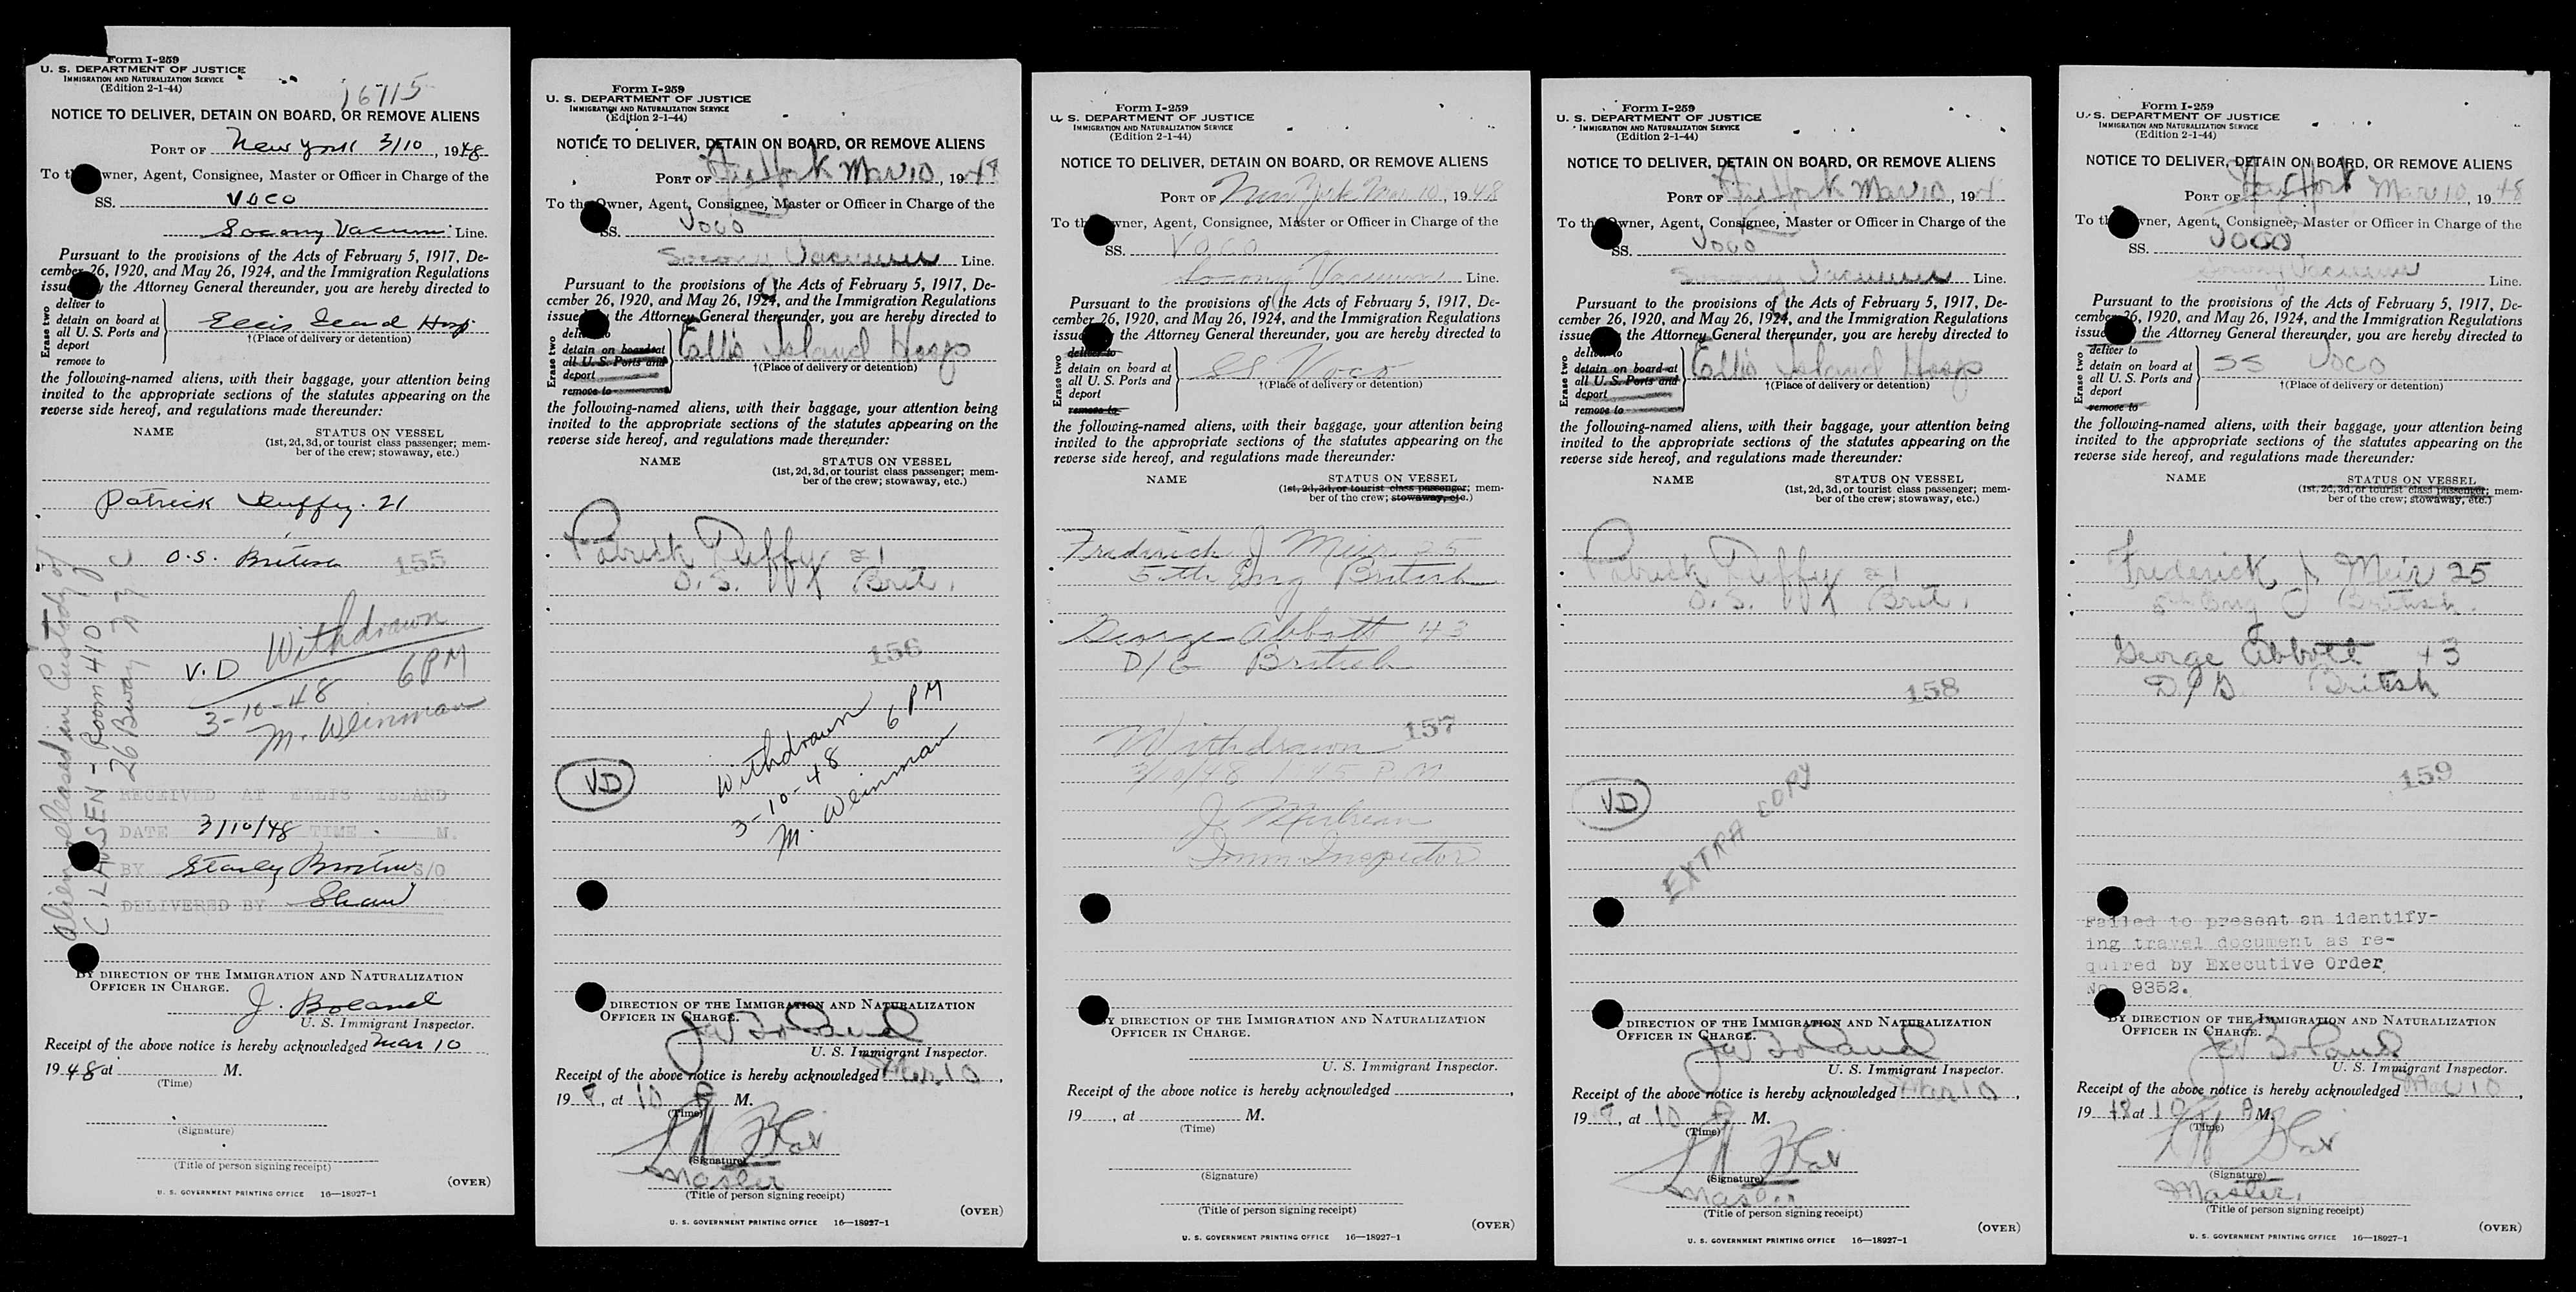 Form I-259
U. S. DEPARTMENT OF JUSTICE
IMMIGRATION AND NATURALIZATION SERVICE
(Edition 2-1-44)
16715
NOTICE TO DELIVER, DETAIN ON BOARD, OR REMOVE ALIENS
PORT OF New York 3/10, 1948
To the Owner, Agent, Consignee, Master or Officer in Charge of the
SS. VOCO
Socony Vacuum Line.
Pursuant to the provisions of the Acts of February 5, 1917, De-
cember 26, 1920, and May 26, 1924, and the Immigration Regulations
issued by the Attorney General thereunder, you are hereby directed to
Erase two
deliver to
detain on board at
all U. S. Ports and
deport
remove to
Ellis Island Hosp
†(Place of delivery or detention)
the following-named aliens, with their baggage, your attention being
invited to the appropriate sections of the statutes appearing on the
reverse side hereof, and regulations made thereunder:
NAME STATUS ON VESSEL
(1st, 2d, 3d, or tourist class passenger; mem-
ber of the crew; stowaway, etc.)
Patrick Duffy. 21
O.S. British 155
V.D Withdrawn
3-10-48 6 PM
M. Weinman
Alien released in Custody of
C. LAWSEN - Room 410
26 Bway
RECEIVED AT ELLIS ISLAND
DATE 3/10/48 TIME M.
BY Stanley S/O
DELIVERED BY Shaw
BY DIRECTION OF THE IMMIGRATION AND NATURALIZATION
OFFICER IN CHARGE.
J. Boland
U. S. Immigrant Inspector.
Receipt of the above notice is hereby acknowledged Mar 10
1948 at M.
(Time)
(Signature)
(Title of person signing receipt)
(OVER)
U. S. GOVERNMENT PRINTING OFFICE 16—18927-1
Form I-259
U. S. DEPARTMENT OF JUSTICE
IMMIGRATION AND NATURALIZATION SERVICE
(Edition 2-1-44)
NOTICE TO DELIVER, DETAIN ON BOARD, OR REMOVE ALIENS
PORT OF New York Mar 10, 1948
To the Owner, Agent, Consignee, Master or Officer in Charge of the
SS. Voco
Socony Vacuum Line.
Pursuant to the provisions of the Acts of February 5, 1917, De-
cember 26, 1920, and May 26, 1924, and the Immigration Regulations
issued the Attorney General thereunder, you are hereby directed to
Erase two
deliver to
detain on board at
all U. S. Ports and
deport
remove to
Ellis Island Hosp
†(Place of delivery or detention)
the following-named aliens, with their baggage, your attention being
invited to the appropriate sections of the statutes appearing on the
reverse side hereof, and regulations made thereunder:
NAME STATUS ON VESSEL
(1st, 2d, 3d, or tourist class passenger; mem-
ber of the crew; stowaway, etc.)
Patrick Duffy 21
O.S. Brit.
156
VD
Withdrawn 6 PM
3-10-48
M. Weinman
DIRECTION OF THE IMMIGRATION AND NATURALIZATION
OFFICER IN CHARGE.
J Boland
U. S. Immigrant Inspector.
Receipt of the above notice is hereby acknowledged Mar 10,
19 , at 10 M.
(Time)
(Signature)
Master
(Title of person signing receipt)
(OVER)
U. S. GOVERNMENT PRINTING OFFICE 16—18927-1
Form I-259
U. S. DEPARTMENT OF JUSTICE
IMMIGRATION AND NATURALIZATION SERVICE
(Edition 2-1-44)
NOTICE TO DELIVER, DETAIN ON BOARD, OR REMOVE ALIENS
PORT OF New York Mar 10, 1948
To the Owner, Agent, Consignee, Master or Officer in Charge of the
SS. VOCO
Socony Vacuum Line.
Pursuant to the provisions of the Acts of February 5, 1917, De-
cember 26, 1920, and May 26, 1924, and the Immigration Regulations
issued the Attorney General thereunder, you are hereby directed to
Erase two
deliver to
detain on board at
all U. S. Ports and
deport
remove to
SS Voco
†(Place of delivery or detention)
the following-named aliens, with their baggage, your attention being
invited to the appropriate sections of the statutes appearing on the
reverse side hereof, and regulations made thereunder:
NAME STATUS ON VESSEL
(1st, 2d, 3d, or tourist class passenger; mem-
ber of the crew; stowaway, etc.)
Frederick J Meir 25
5th Eng British
George Abbott 43
British
157
Withdrawn
3/10/48 1:45 P.M
Imm. Inspector
BY DIRECTION OF THE IMMIGRATION AND NATURALIZATION
OFFICER IN CHARGE.
U. S. Immigrant Inspector.
Receipt of the above notice is hereby acknowledged ,
19 , at M.
(Time)
(Signature)
(Title of person signing receipt)
(OVER)
U. S. GOVERNMENT PRINTING OFFICE 16—18927-1
Form I-259
U. S. DEPARTMENT OF JUSTICE
IMMIGRATION AND NATURALIZATION SERVICE
(Edition 2-1-44)
NOTICE TO DELIVER, DETAIN ON BOARD, OR REMOVE ALIENS
PORT OF New York Mar 10, 194
To the Owner, Agent, Consignee, Master or Officer in Charge of the
SS. Voco
Socony Vacuum Line.
Pursuant to the provisions of the Acts of February 5, 1917, De-
cember 26, 1920, and May 26, 1924, and the Immigration Regulations
issued the Attorney General thereunder, you are hereby directed to
Erase two
deliver to
detain on board at
all U. S. Ports and
deport
remove to
Ellis Island Hosp
†(Place of delivery or detention)
the following-named aliens, with their baggage, your attention being
invited to the appropriate sections of the statutes appearing on the
reverse side hereof, and regulations made thereunder:
NAME STATUS ON VESSEL
(1st, 2d, 3d, or tourist class passenger; mem-
ber of the crew; stowaway, etc.)
Patrick Duffy 21
O.S. Brit.
158
VD
EXTRA COPY
DIRECTION OF THE IMMIGRATION AND NATURALIZATION
OFFICER IN CHARGE.
J Boland
U. S. Immigrant Inspector.
Receipt of the above notice is hereby acknowledged Mar 10,
19 , at 10 M.
(Time)
(Signature)
Master
(Title of person signing receipt)
(OVER)
U. S. GOVERNMENT PRINTING OFFICE 16—18927-1
Form I-259
U. S. DEPARTMENT OF JUSTICE
IMMIGRATION AND NATURALIZATION SERVICE
(Edition 2-1-44)
NOTICE TO DELIVER, DETAIN ON BOARD, OR REMOVE ALIENS
PORT OF New York Mar 10, 1948
To the Owner, Agent, Consignee, Master or Officer in Charge of the
SS. VOCO
Socony Vacuum Line.
Pursuant to the provisions of the Acts of February 5, 1917, De-
cember 26, 1920, and May 26, 1924, and the Immigration Regulations
issued the Attorney General thereunder, you are hereby directed to
Erase two
deliver to
detain on board at
all U. S. Ports and
deport
remove to
SS VOCO
†(Place of delivery or detention)
the following-named aliens, with their baggage, your attention being
invited to the appropriate sections of the statutes appearing on the
reverse side hereof, and regulations made thereunder:
NAME STATUS ON VESSEL
(1st, 2d, 3d, or tourist class passenger; mem-
ber of the crew; stowaway, etc.)
Frederick J Meir 25
5th Eng British.
George Abbott 43
British
159
Failed to present an identify-
ing travel document as re-
quired by Executive Order
No. 9352.
BY DIRECTION OF THE IMMIGRATION AND NATURALIZATION
OFFICER IN CHARGE.
J Boland
U. S. Immigrant Inspector.
Receipt of the above notice is hereby acknowledged Mar 10,
1948 at 10 A M.
(Time)
(Signature)
Master.
(Title of person signing receipt)
(OVER)
U. S. GOVERNMENT PRINTING OFFICE 16—18927-1